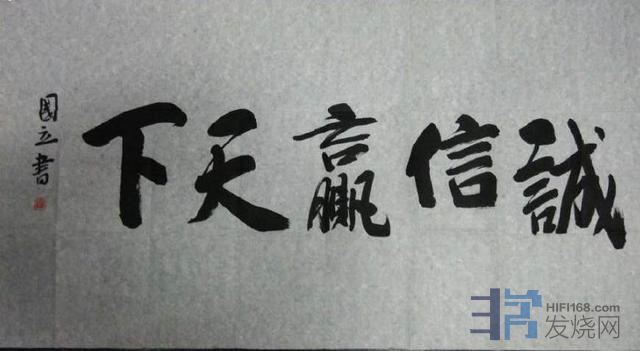 誠信赢天下
国立書
HIFI168.com
发烧网